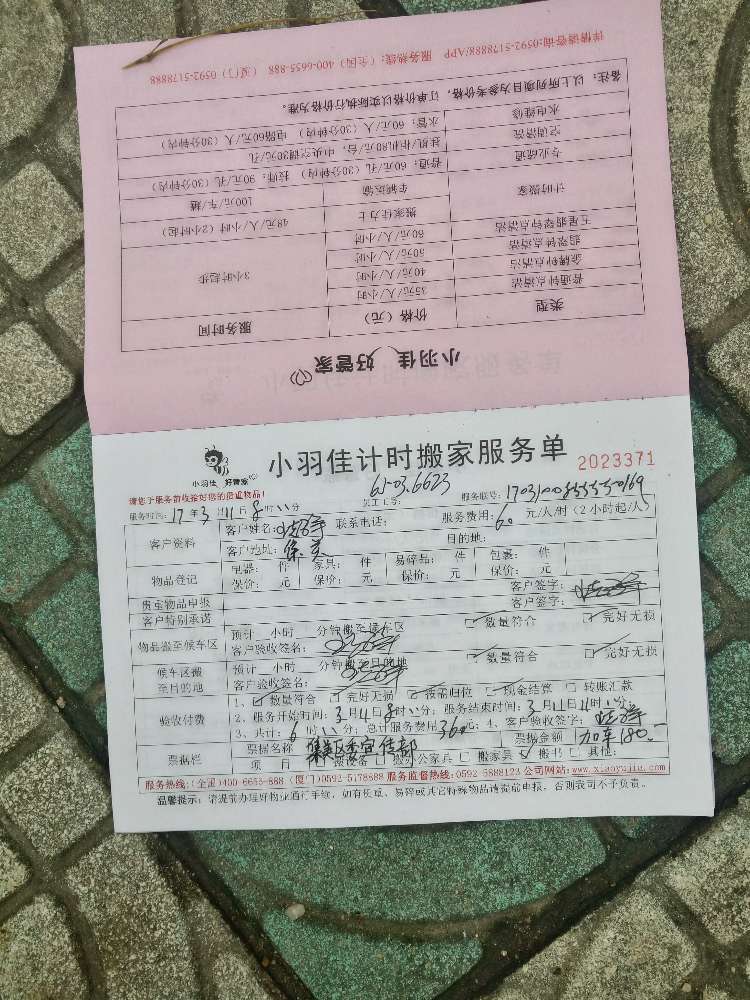 小羽佳 好管家
类型 价格（元） 服务时间
普通钟点清洁 35元/人/小时 3小时起步
金牌钟点清洁 40元/人/小时
翡翠钟点清洁 50元/人/小时
五星翡翠钟点清洁 60元/人/小时
计时搬家 搬家佳力士 48元/人/小时（2小时起）
车辆运输 100元/车/趟
专业疏通 普通：60元/孔（30分钟内） 技师：90元/孔（30分钟内）
空调清洗 挂机/柜机80元/台；中央空调30元/孔
水电维修 水管：60元/人（30分钟内） 电路60元/人（30分钟内）
备注：以上所列项目为参考价格，订单价格以实际执行价格为准。
详情请咨询:0592-5178888/APP 服务热线：（全国）400-6655-888 （厦门）0592-5178888
小羽佳 好管家
小羽佳计时搬家服务单
2023371
请您于服务前收捡好您的贵重物品！
员工工号：
服务联号：
服务时间：17年3月11日8时 分
客户资料 客户姓名： 联系电话： 服务费用：60元/人/时（2小时起/人）
客户地址：集美 目的地：
物品登记 电器： 件 家具： 件 易碎品： 件 包裹： 件
保价： 元 保价： 元 保价： 元 保价： 元
贵重物品申报 客户签字：
客户特别承诺 客户签字：
物品搬至候车区 预计 小时 分钟搬至候车区 数量符合 完好无损
客户验收签名：
候车区搬至目的地 预计 小时 分钟搬至目的地 数量符合 完好无损
客户验收签名：
验收付费 1、数量符合 完好无损 按需归位 现金结算 转账汇款
2、服务开始时间：3月11日8时 分；服务结束时间：3月11日11时 分；
3、共计：6时 分；总计服务费用360元；4、客户验收签字：
票据栏 票据名称 集美区委宣传部 票据金额 加车180.—
项 目 搬设备 搬办公家具 搬家具 搬书 其他：
服务热线：(全国)400-6655-888 (厦门)0592-5178888 服务监督热线：0592 5888123 公司网站：www.xiaoyujia.com
温馨提示：请提前办理好物业通行手续，如有贵重、易碎或其它特殊物品请提前申报，否则我司不予负责。